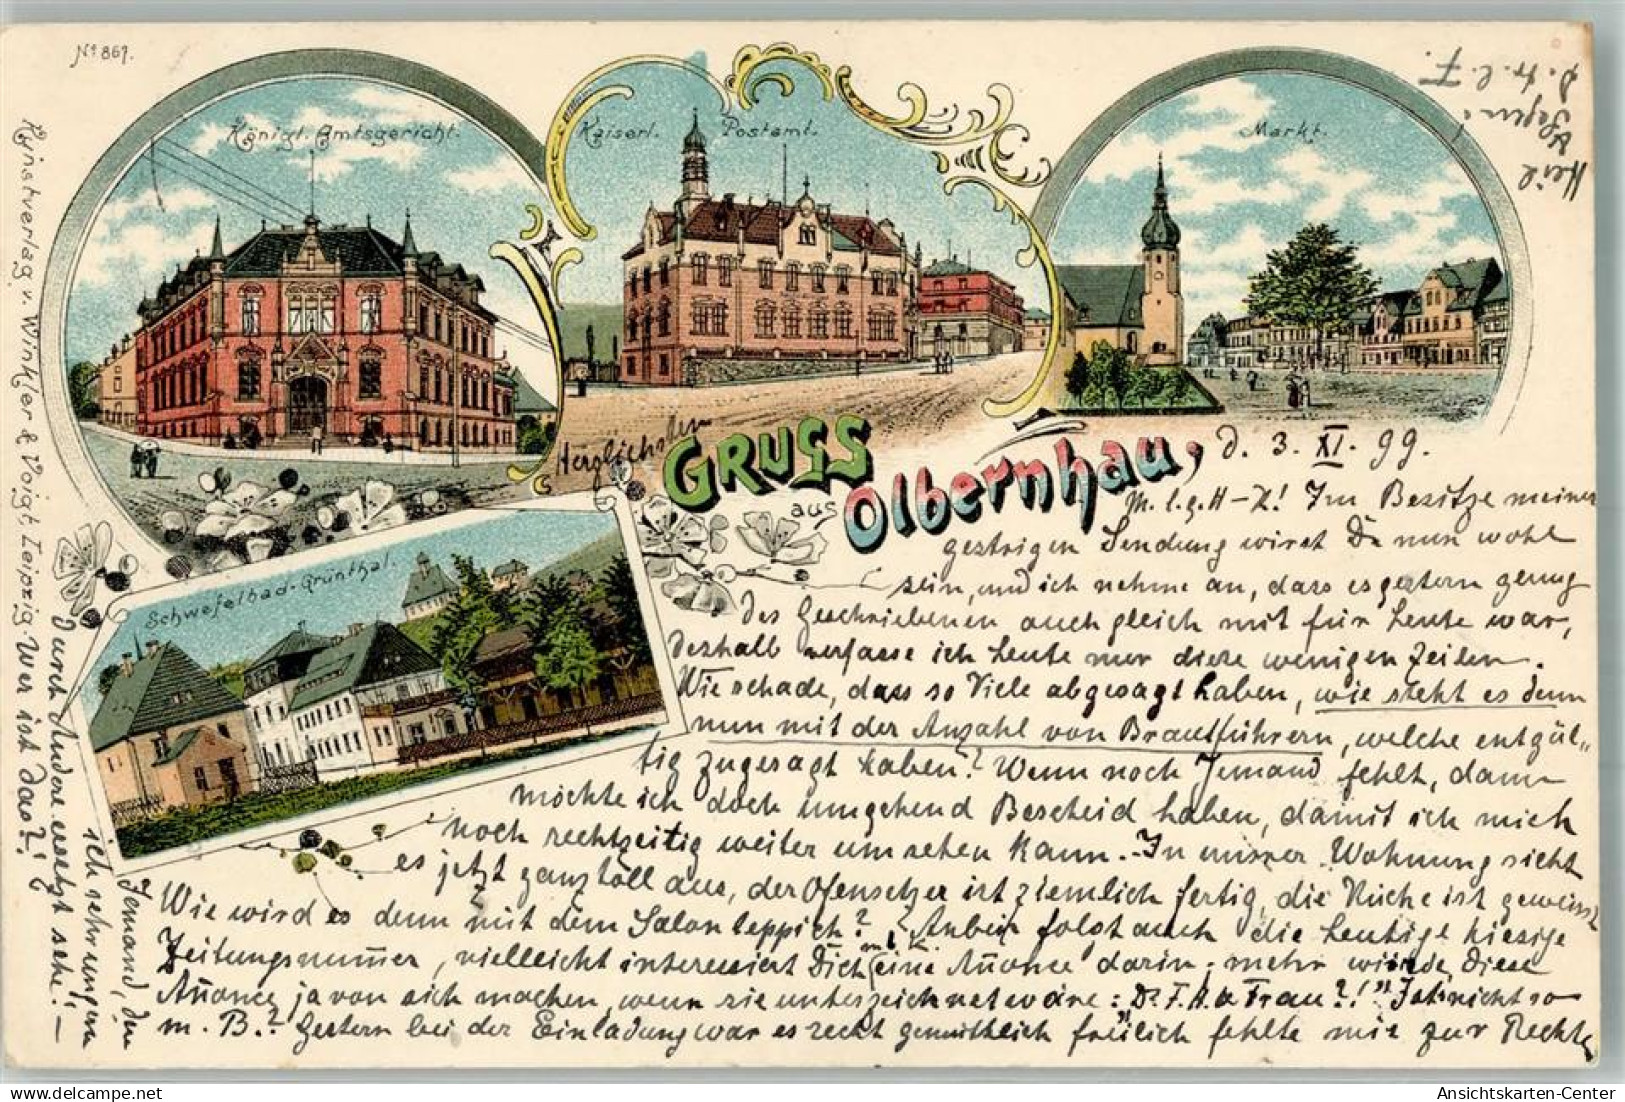 Nº 867.
Königl. Amtsgericht.
Kaiserl. Postamt.
Markt.
Schwefelbad-Grünthal.
Kunstverlag v. Winkler & Voigt. Leipzig.
Herzlichsten
GRUSS
aus
Olbernhau,
d. 3. XI. 99.
M. l. g. H-K! Im Besitze meiner
gestrigen Sendung wirst Du nun wohl
sein, und ich nehme an, dass es gestern genug
des Geschriebenen auch gleich mit für heute war,
deshalb verfasse ich heute nur diese wenigen Zeilen.
Wie schade, dass so Viele abgesagt haben, wie steht es denn
nun mit der Anzahl von Brautführern, welche entgül„
tig zugesagt haben? Wenn noch Jemand fehlt, dann
möchte ich doch umgehend Bescheid haben, damit ich mich
noch rechtzeitig weiter umsehen kann. - In unsrer Wohnung sieht
es jetzt ganz toll aus, der Ofensetzer ist ziemlich fertig, die Küche ist geweisst
Wie wird es denn mit dem Salonteppich? Anbei folgt auch die heutige hiesige
Zeitungsnum̄er, vielleicht interessiert Dich eine Añonce darin; mehr würde diese
Añonce ja von sich machen, wenn sie unterzeichnet wäre: "Dr. F. H. & Frau"?! Ists nicht so
m. B.? Gestern bei der Einladung war es recht gemüthlich freilich fehlte mir zur Rechten
Jemand, den
ich sehr ungern
durch Andere ersetzt sehe! -
Wer ist das?!
Heil
&
Segen!